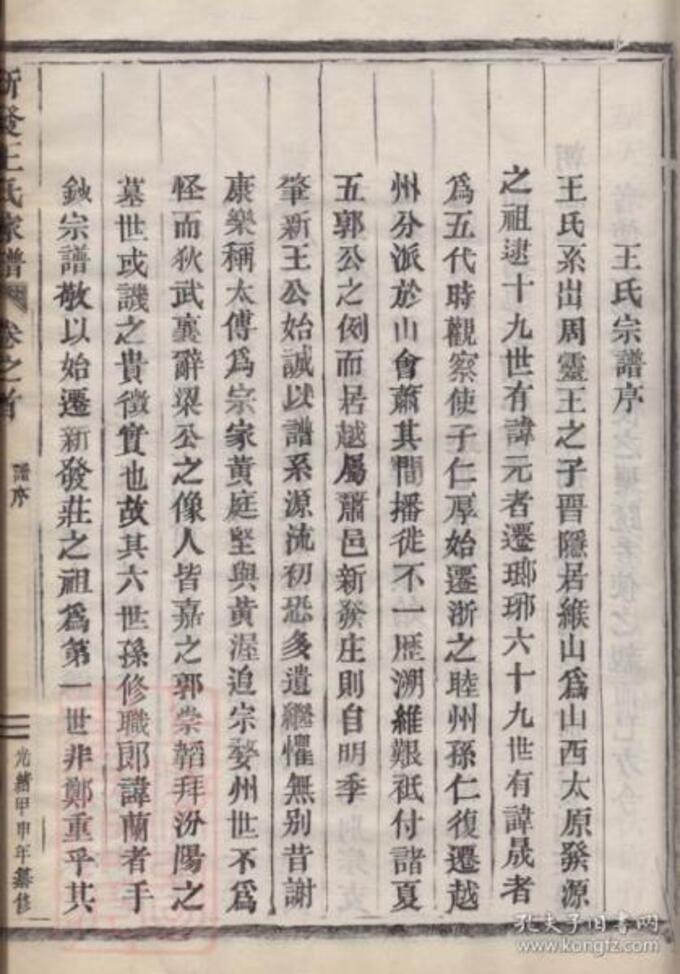 王氏宗譜序
王氏系出周靈王之子晋隱居緱山爲山西太原發源
之祖逮十九世有諱元者遷瑯琊六十九世有諱晟者
爲五代時觀察使子仁厚始遷浙之睦州孫仁復遷越
州分派於山會蕭其間播徙不一歷溯維艱祗付諸夏
五郭公之例而居越屬蕭邑新發庄則自明季
肇新王公始誠以譜系源流初恐多遺繼懼無别昔謝
康樂稱太傅爲宗家黄庭堅與黄渥追宗婺州世不爲
怪而狄武襄辭梁公之像人皆嘉之郭崇韜拜汾陽之
墓世或譏之貴徵實也故其六世孫修職郎諱蘭者手
鈔宗譜敬以始遷新發莊之祖爲第一世非鄭重乎其
新發王氏家譜 卷之首 譜序 二 光緒甲申年纂修
孔夫子旧书网
www.kongfz.com